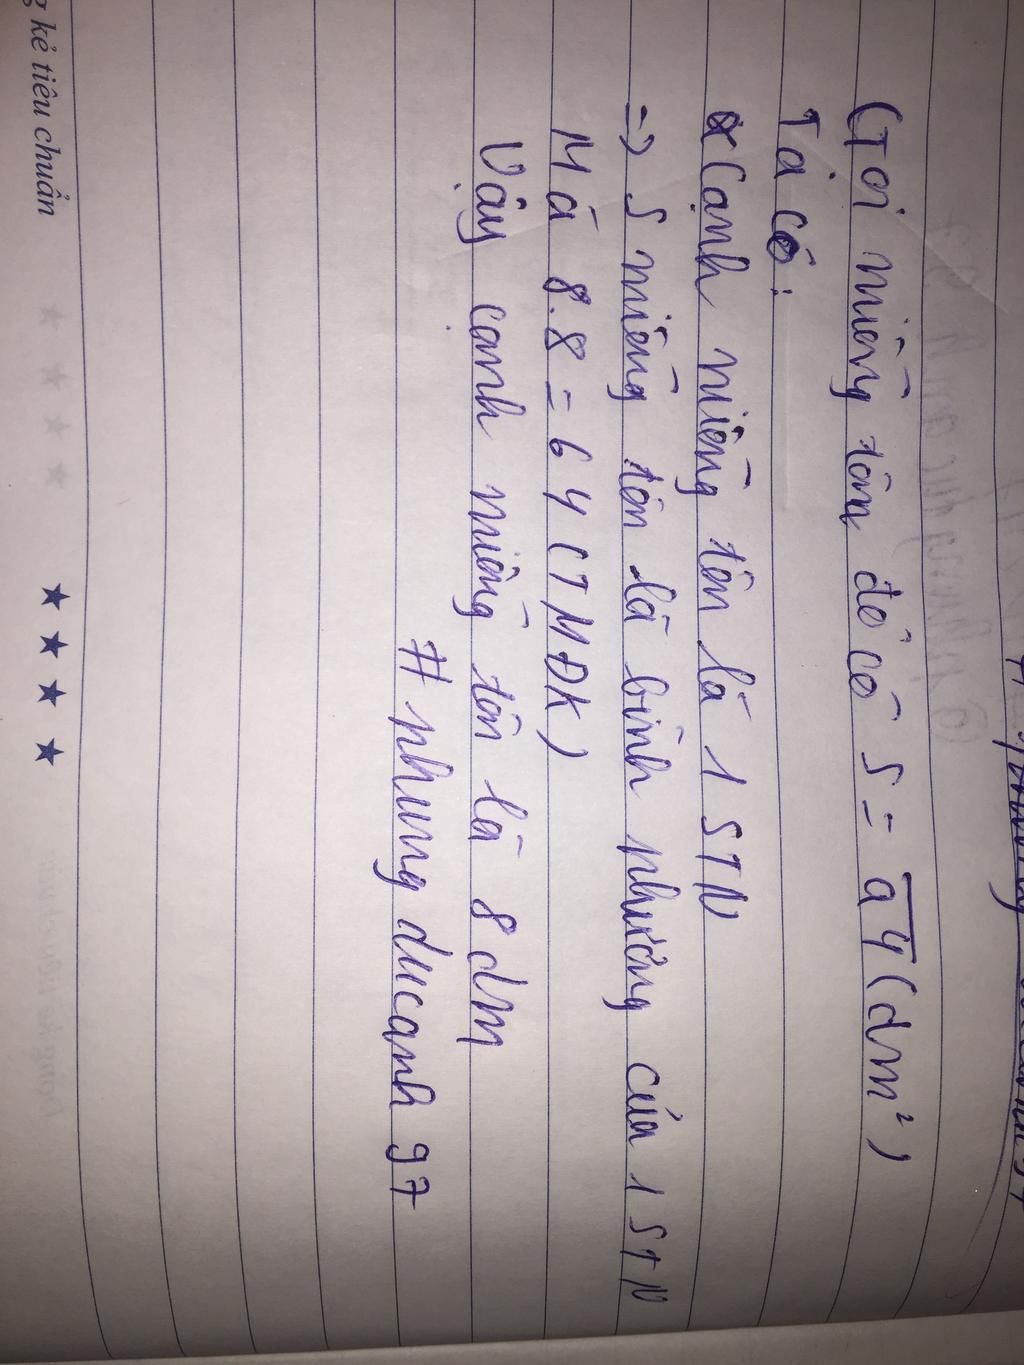 Gọi miếng tôn đó có S = a4 (dm²)
Ta có:
Cạnh miếng tôn là 1 STN
=> S miếng tôn là bình phương của 1 STN
Mà 8.8 = 64 (TMĐK)
Vậy cạnh miếng tôn là 8 dm
# phungducanh 97
g kẻ tiêu chuẩn